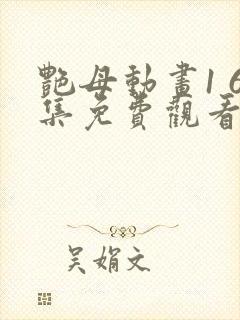 艷母動畫16
集免費觀看
吳娟文